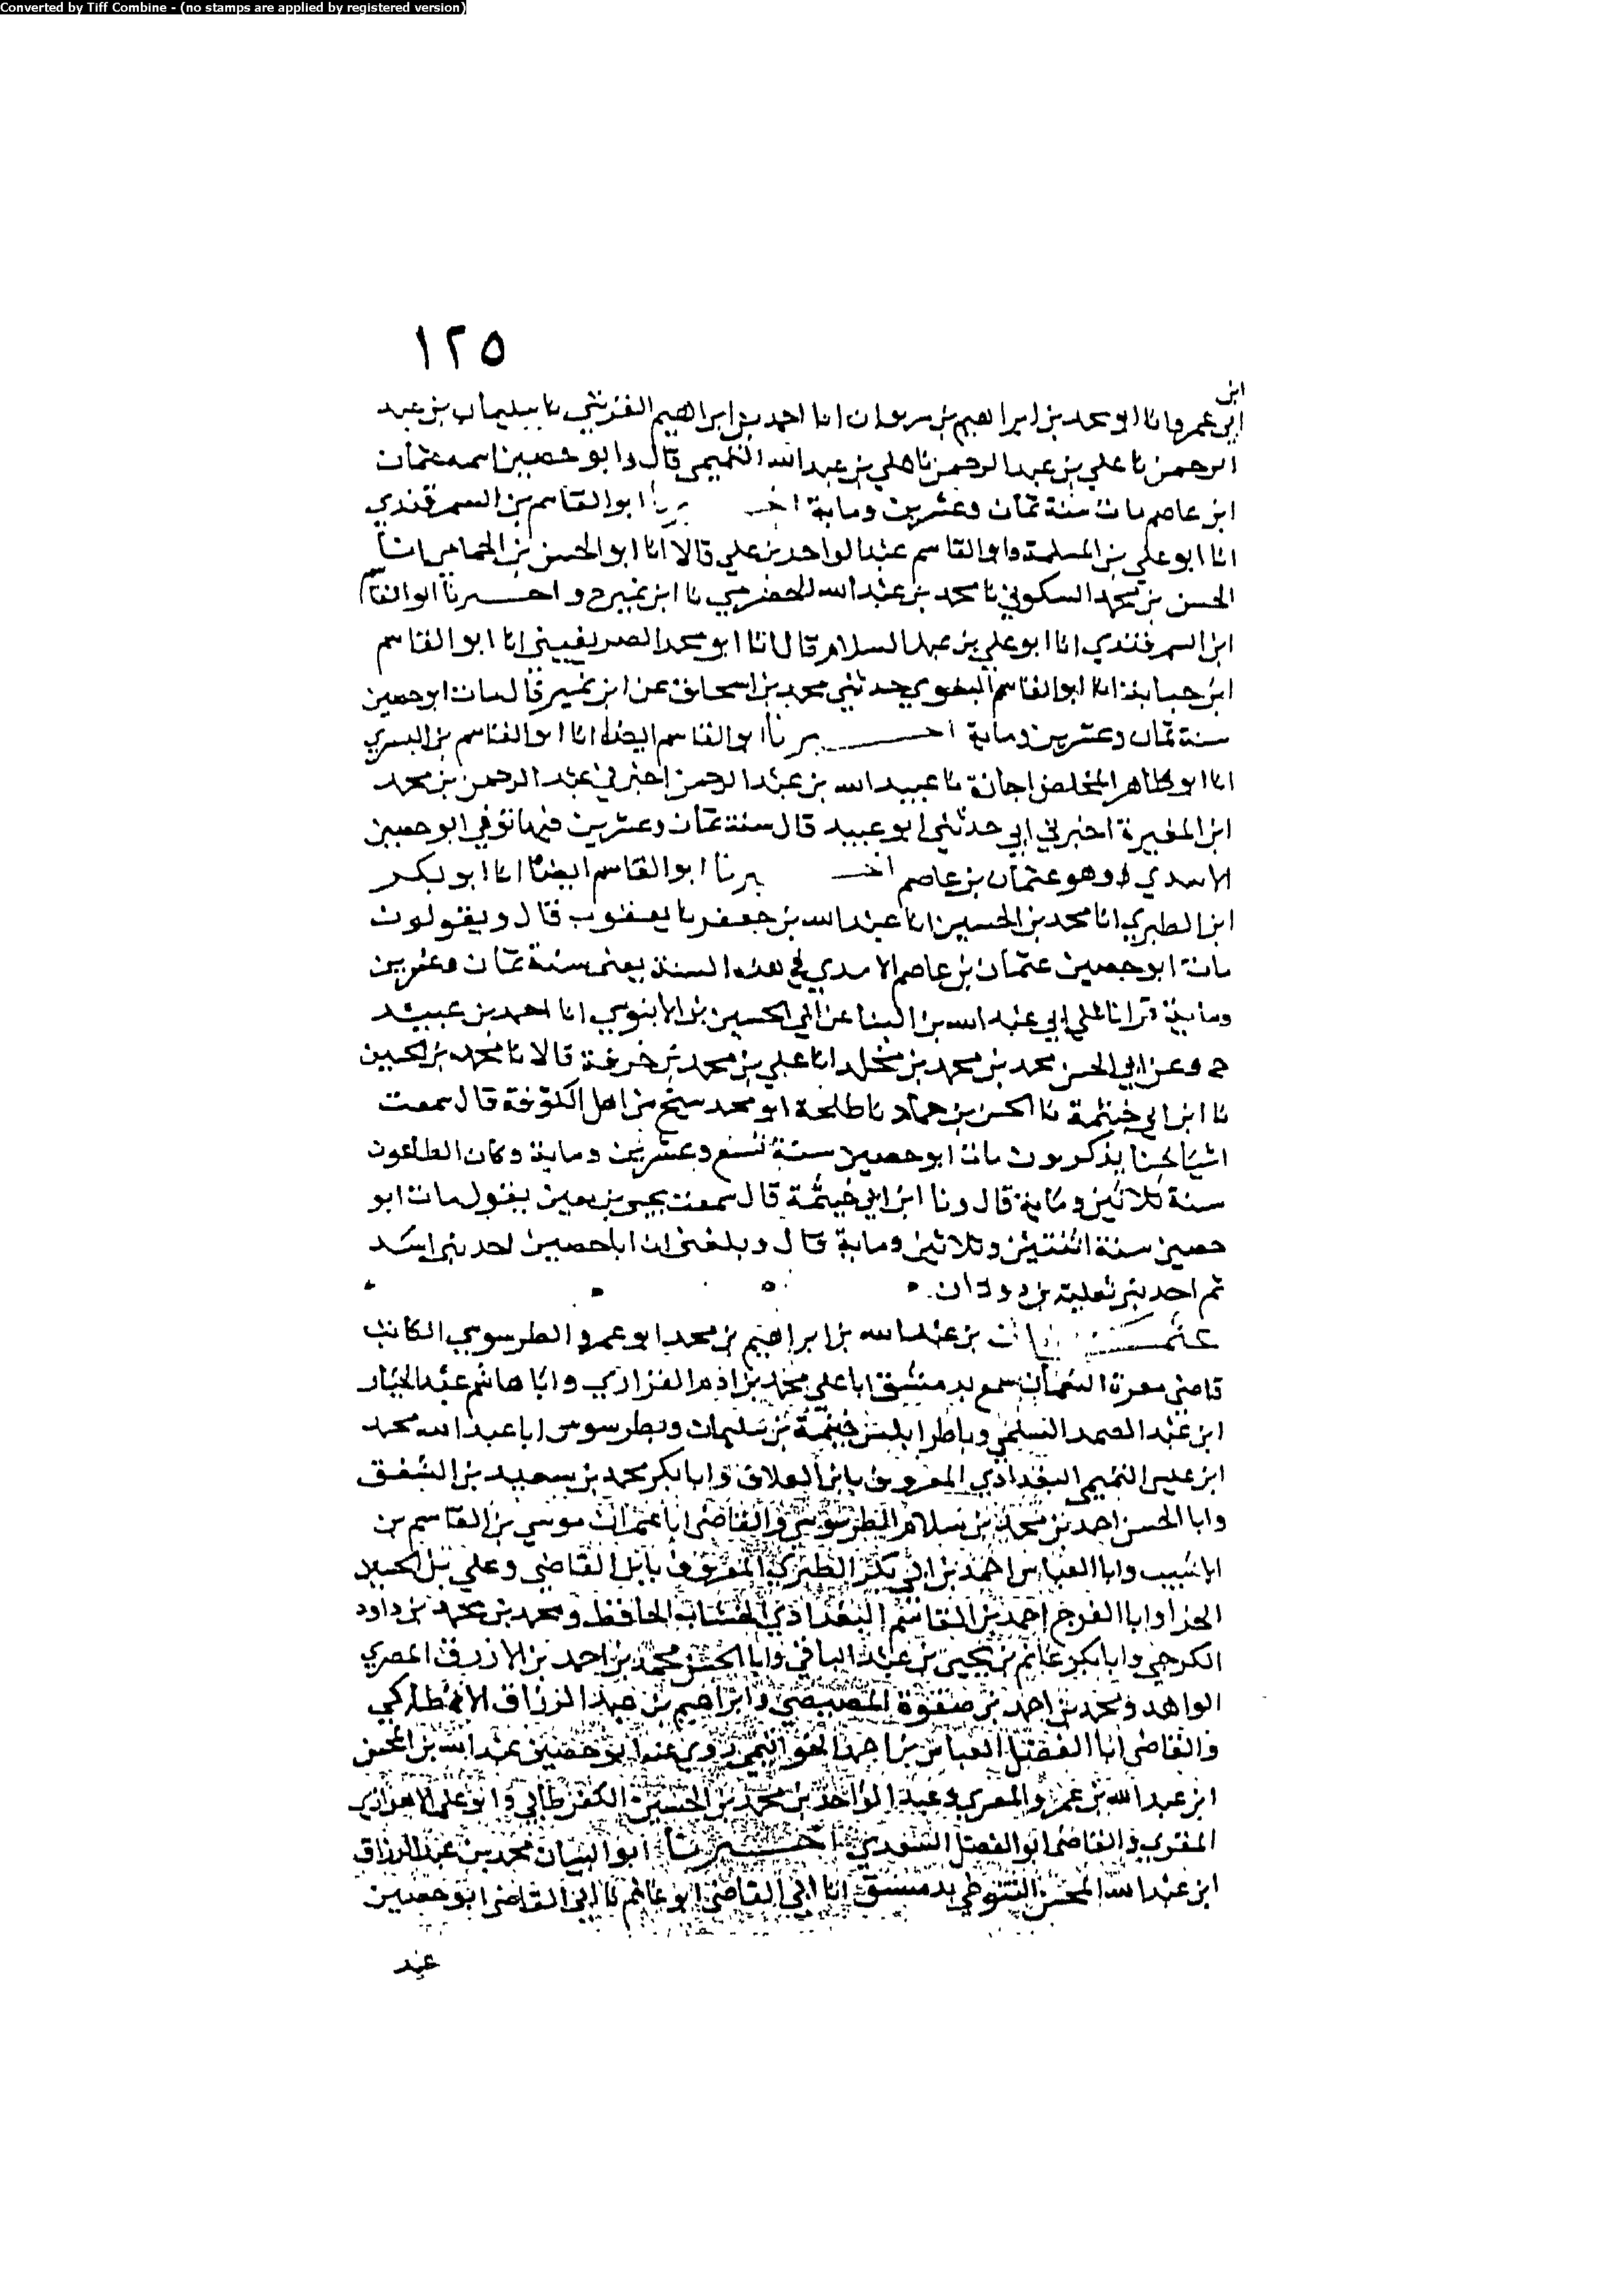 Converted by Tiff Combine - (no stamps are applied by registered version)
١٢٥
ابن
ابي عمر وانا ابو محمد بن ابراهيم بن مروان انا احمد بن ابراهيم القرشي نا سليمان بن عبد
الرحمن نا علي بن عبد الرحمن نا علي بن عبد الله التميمي قال وابو حصين اسمه عثمان
ابن عاصم مات سنة ثمان وعشرين وماية اخبرنا ابو القاسم بن السمرقندي
انا ابو علي بن المسلمة وابو القاسم عبد الواحد بن علي قالا انا ابو الحسن بن الحمامي انا
الحسن بن محمد السكوني نا محمد بن عبد الله الحضرمي نا ابن نمير ح واخبرنا ابو القاسم
ابن السمرقندي انا ابو علي بن عبد السلام قال انا ابو محمد الصريفيني انا ابو القاسم
ابن حبابة انا ابو القاسم البغوي حدثني محمد بن اسحاق عن ابن نمير قال مات ابو حصين
سنة ثمان وعشرين وماية اخبرنا ابو القاسم ايضا انا ابو القاسم بن البسري
انا ابو طاهر المخلص اجازة نا عبيد الله بن عبد الرحمن اخبرني عبد الرحمن بن محمد
ابن المغيرة اخبرني ابي حدثني ابو عبيد قال سنة ثمان وعشرين فيها توفي ابو حصين
الاسدي وهو عثمان بن عاصم اخبرنا ابو القاسم ايضا انا ابو بكر
ابن الطبري انا محمد بن الحسين انا عبد الله بن جعفر نا يعقوب قال ويقولون
مات ابو حصين عثمان بن عاصم الاسدي في هذه السنة يعني سنة ثمان وعشرين
وماية قرانا على ابي عبد الله بن البنا عن ابي الحسين بن الابنوسي انا احمد بن عبيد
ح وعن ابي الحسن محمد بن محمد بن مخلد انا علي بن محمد بن خزفة قالا نا محمد بن الحسين
نا ابن ابي خيثمة نا الحسن بن حماد نا طلحة ابو محمد شيخ من اهل الكوفة قال سمعت
اشياخنا يذكرون مات ابو حصين سنة تسع وعشرين وماية وكان الطاعون
سنة ثلاثين وماية قال ونا ابن ابي خيثمة قال سمعت يحيى بن معين يقول مات ابو
حصين سنة اثنتين وثلاثين وماية قال وبلغني ان ابا حصين احد بني اسد
ثم احد بني ثعلبة بن دودان
عثمان بن عبد الله بن ابراهيم بن محمد ابو عمرو الطرسوسي الكاتب
قاضي معرة النعمان سمع بدمشق ابا علي محمد بن ادم الفزاري وابا هاشم عبد الجبار
ابن عبد الصمد السلمي وباطرابلس خيثمة بن سليمان وبطرسوس ابا عبد الله محمد
ابن عيسى التميمي البغدادي المعروف بابن العلاف وابا بكر محمد بن سعيد بن الشفق
وابا الحسن احمد بن محمد بن سلام الطرسوسي والقاضي ابا عمران موسى بن القاسم بن
الاشيب وابا العباس احمد بن ابي بكر الطبري المعروف بابن القاضي وعلي بن
وابا الفرج احمد بن القاسم البغدادي الخشاب الحافظ ومحمد بن محمد بن داود
الكرجي وابا بكر غانم بن يحيى بن عبد الباقي وابا الحسن محمد بن احمد بن الازرق المصري
الواهد ومحمد بن احمد بن صفوة المصيصي وابراهيم بن عبد الرزاق الانطاكي
والقاضي ابا الفضل العباس بن احمد روى عنه ابو حصين عبد الله بن المحسن
ابن عبد الله بن عمرو المعري وعبد الواحد بن محمد بن الحسين الكفرطابي وابو علي الاهوازي
المقري والقاضي ابو الفضل السعدي اخبرنا ابو البيان محمد بن عبد الرزاق
ابن عبد الله المحسن التنوخي بدمشق انا ابي القاضي ابو غانم نا ابي القاضي ابو حصين
عبد